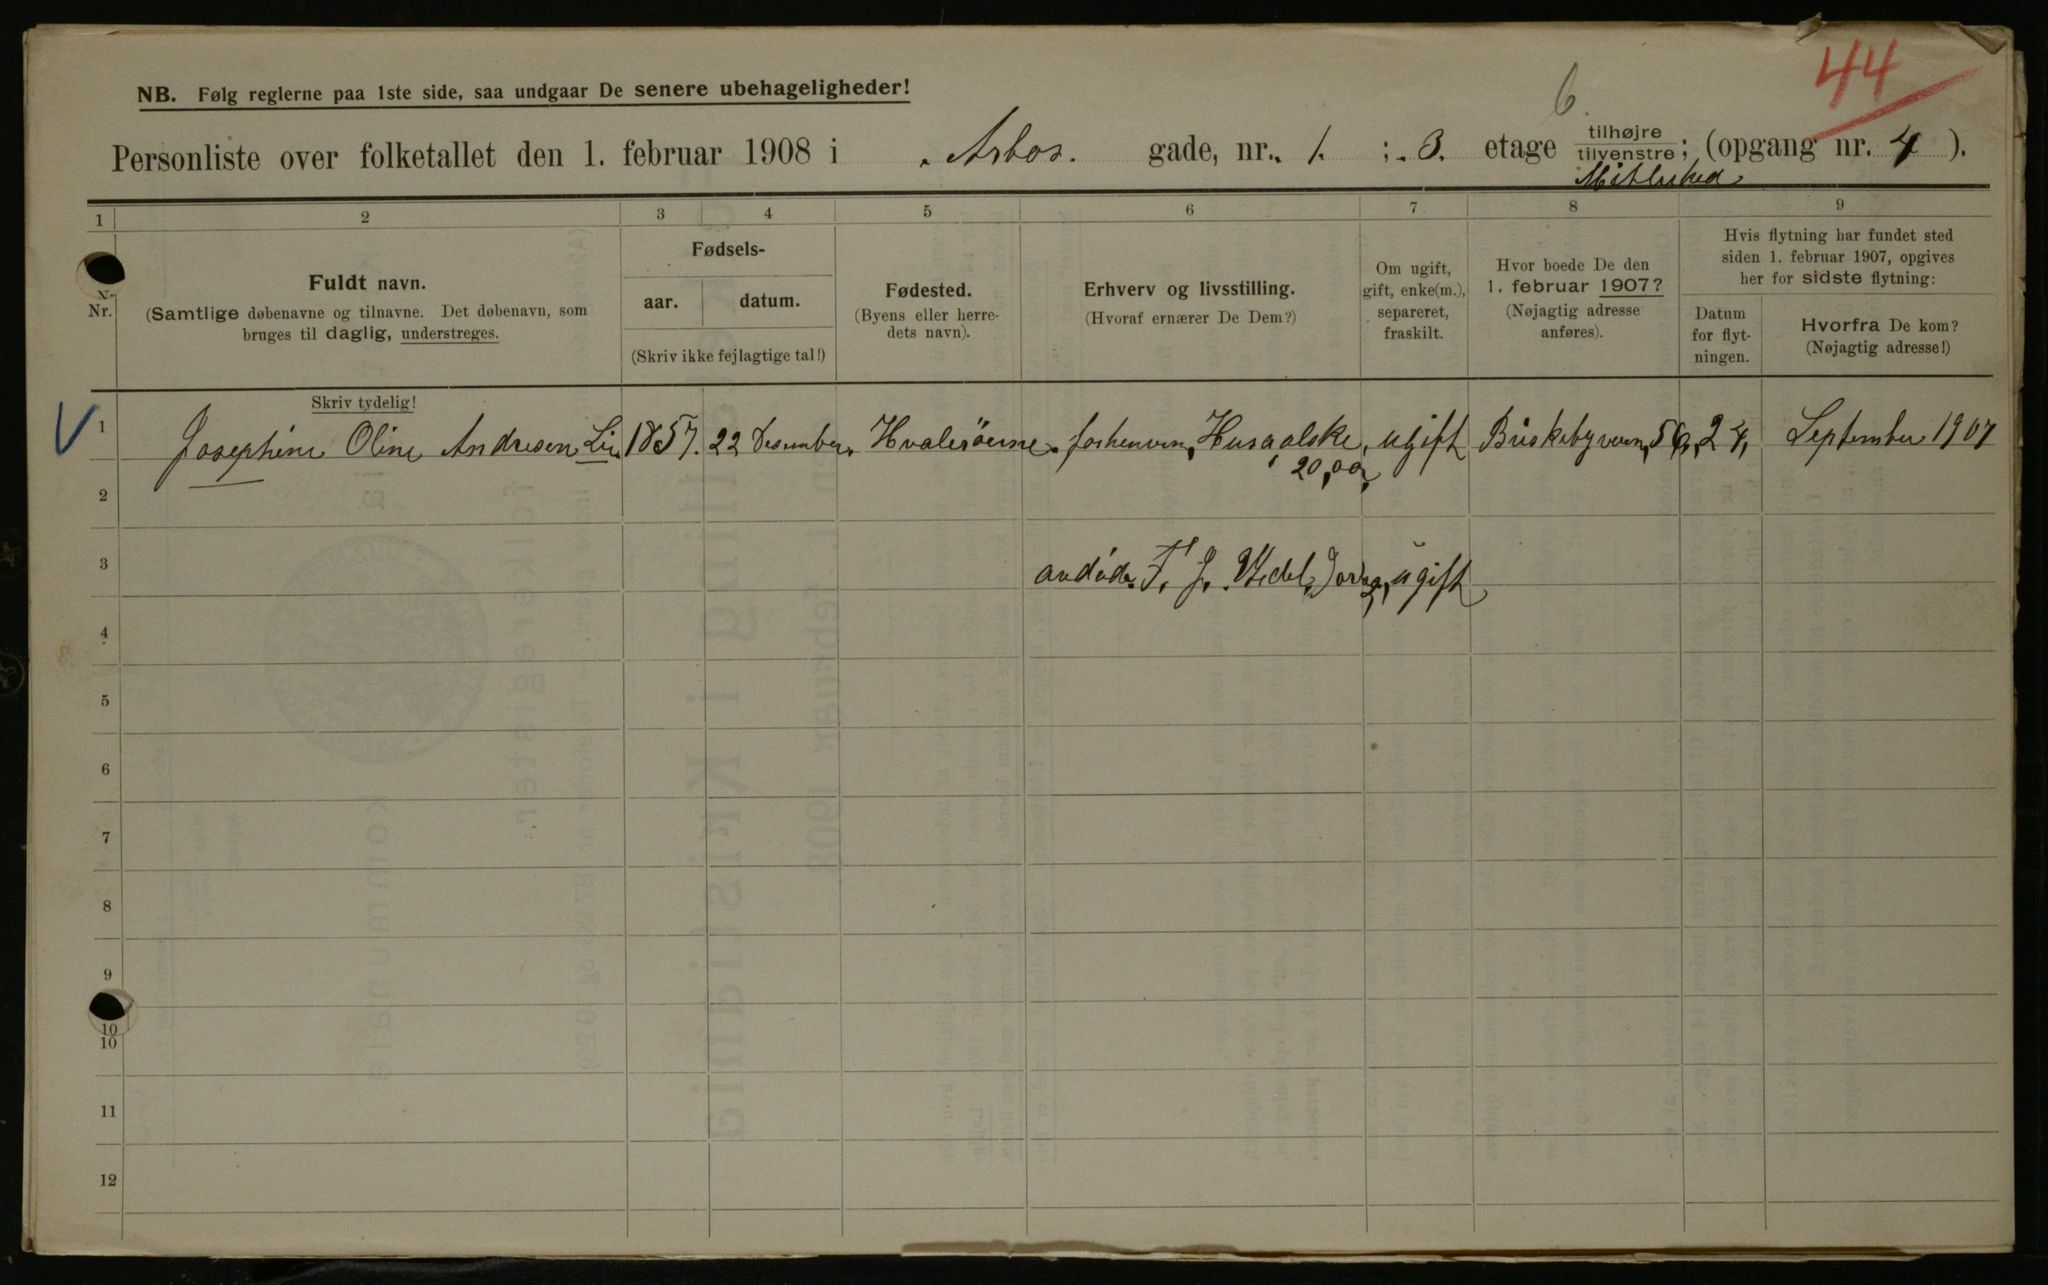 44
6.
NB. Følg reglerne paa 1ste side, saa undgaar De senere ubehageligheder!
Personliste over folketallet den 1. februar 1908 i Arbos. gade, nr. 1. ; 3. etage tilhøjre tilvenstre; (opgang nr. 4).
1 2 3 4 5 6 7 8 9
Nr.
Fuldt navn.
(Samtlige døbenavne og tilnavne. Det døbenavn, som
bruges til daglig, understreges.
Skriv tydelig!
Fødsels-
aar. datum.
(Skriv ikke fejlagtige tal!)
Fødested.
(Byens eller herre-
dets navn).
Erhverv og livsstilling.
(Hvoraf ernærer De Dem?)
Om ugift,
gift, enke(m.),
separeret,
fraskilt.
Hvor boede De den
1. februar 1907?
(Nøjagtig adresse
anføres).
Hvis flytning har fundet sted
siden 1. februar 1907, opgives
her for sidste flytning:
Datum
for flyt-
ningen.
Hvorfra De kom?
(Nøjagtig adresse!)
1 Josephine Oline Andresen Lie 1857. 22 Desember. Hvalerøerne. forhenven, ugift Briskebyveien, 56, 24, September 1907
20,00
2
3 F. J. Wedel, ugift
4
5
6
7
8
9
10
10
11
12